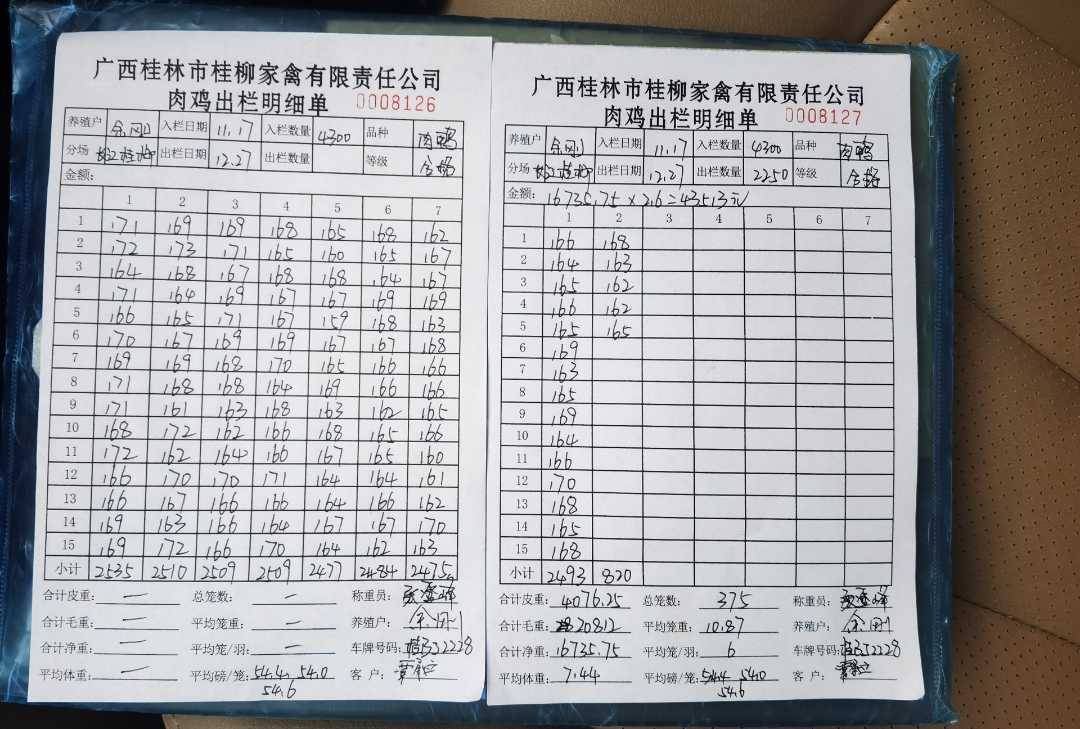 广西桂林市桂柳家禽有限责任公司
肉鸡出栏明细单 0008126
养殖户 余刚 入栏日期 11.17 入栏数量 4300 品种 肉鸭
分场 出栏日期 12.27 出栏数量 等级 合格
金额:
1 2 3 4 5 6 7
1 171 169 169 168 165 168 162
2 172 173 171 165 160 165 167
3 164 168 167 168 168 164 167
4 171 164 169 167 167 169 169
5 166 165 171 167 159 168 163
6 170 167 169 169 167 167 168
7 169 169 168 170 165 166 166
8 171 168 168 164 169 166 166
9 171 161 163 168 163 162 165
10 168 172 162 166 168 165 166
11 172 162 164 166 167 165 160
12 166 170 170 171 164 164 161
13 166 167 166 166 164 166 162
14 169 163 166 164 167 167 170
15 169 172 166 170 164 162 163
小计 2535 2510 2509 2509 2477 2484 2475
合计皮重: — 总笼数: — 称重员:
合计毛重: — 平均笼重: — 养殖户: 余刚
合计净重: — 平均笼/羽: — 车牌号码: 52228
平均体重: — 平均磅/笼: 54.4 54.0 客户:
54.6
广西桂林市桂柳家禽有限责任公司
肉鸡出栏明细单 0008127
养殖户 余刚 入栏日期 11.17 入栏数量 4300 品种 肉鸭
分场 出栏日期 12.27 出栏数量 2250 等级 合格
金额: 16735.75 × 2.6 = 43513元
1 2 3 4 5 6 7
1 166 168
2 164 163
3 165 162
4 166 162
5 165 165
6 169
7 163
8 165
9 169
10 164
11 166
12 170
13 168
14 165
15 168
小计 2493 820
合计皮重: 4076.25 总笼数: 375 称重员:
合计毛重: 20812 平均笼重: 10.87 养殖户: 余刚
合计净重: 16735.75 平均笼/羽: 6 车牌号码: 52228
平均体重: 7.44 平均磅/笼: 54.4 54.0 客户:
54.6